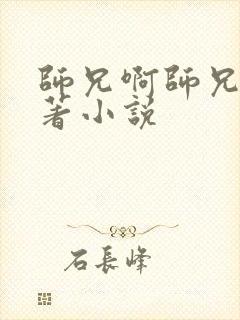 師兄啊師兄
著小説
石長峰